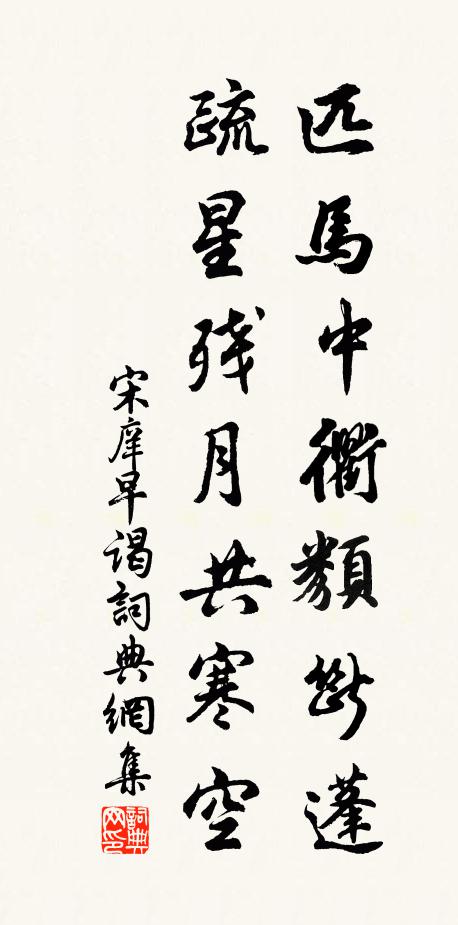 匹馬中衢類斷蓬
疏星残月共寒空
宋庠早謁詞典網集
詞典网印